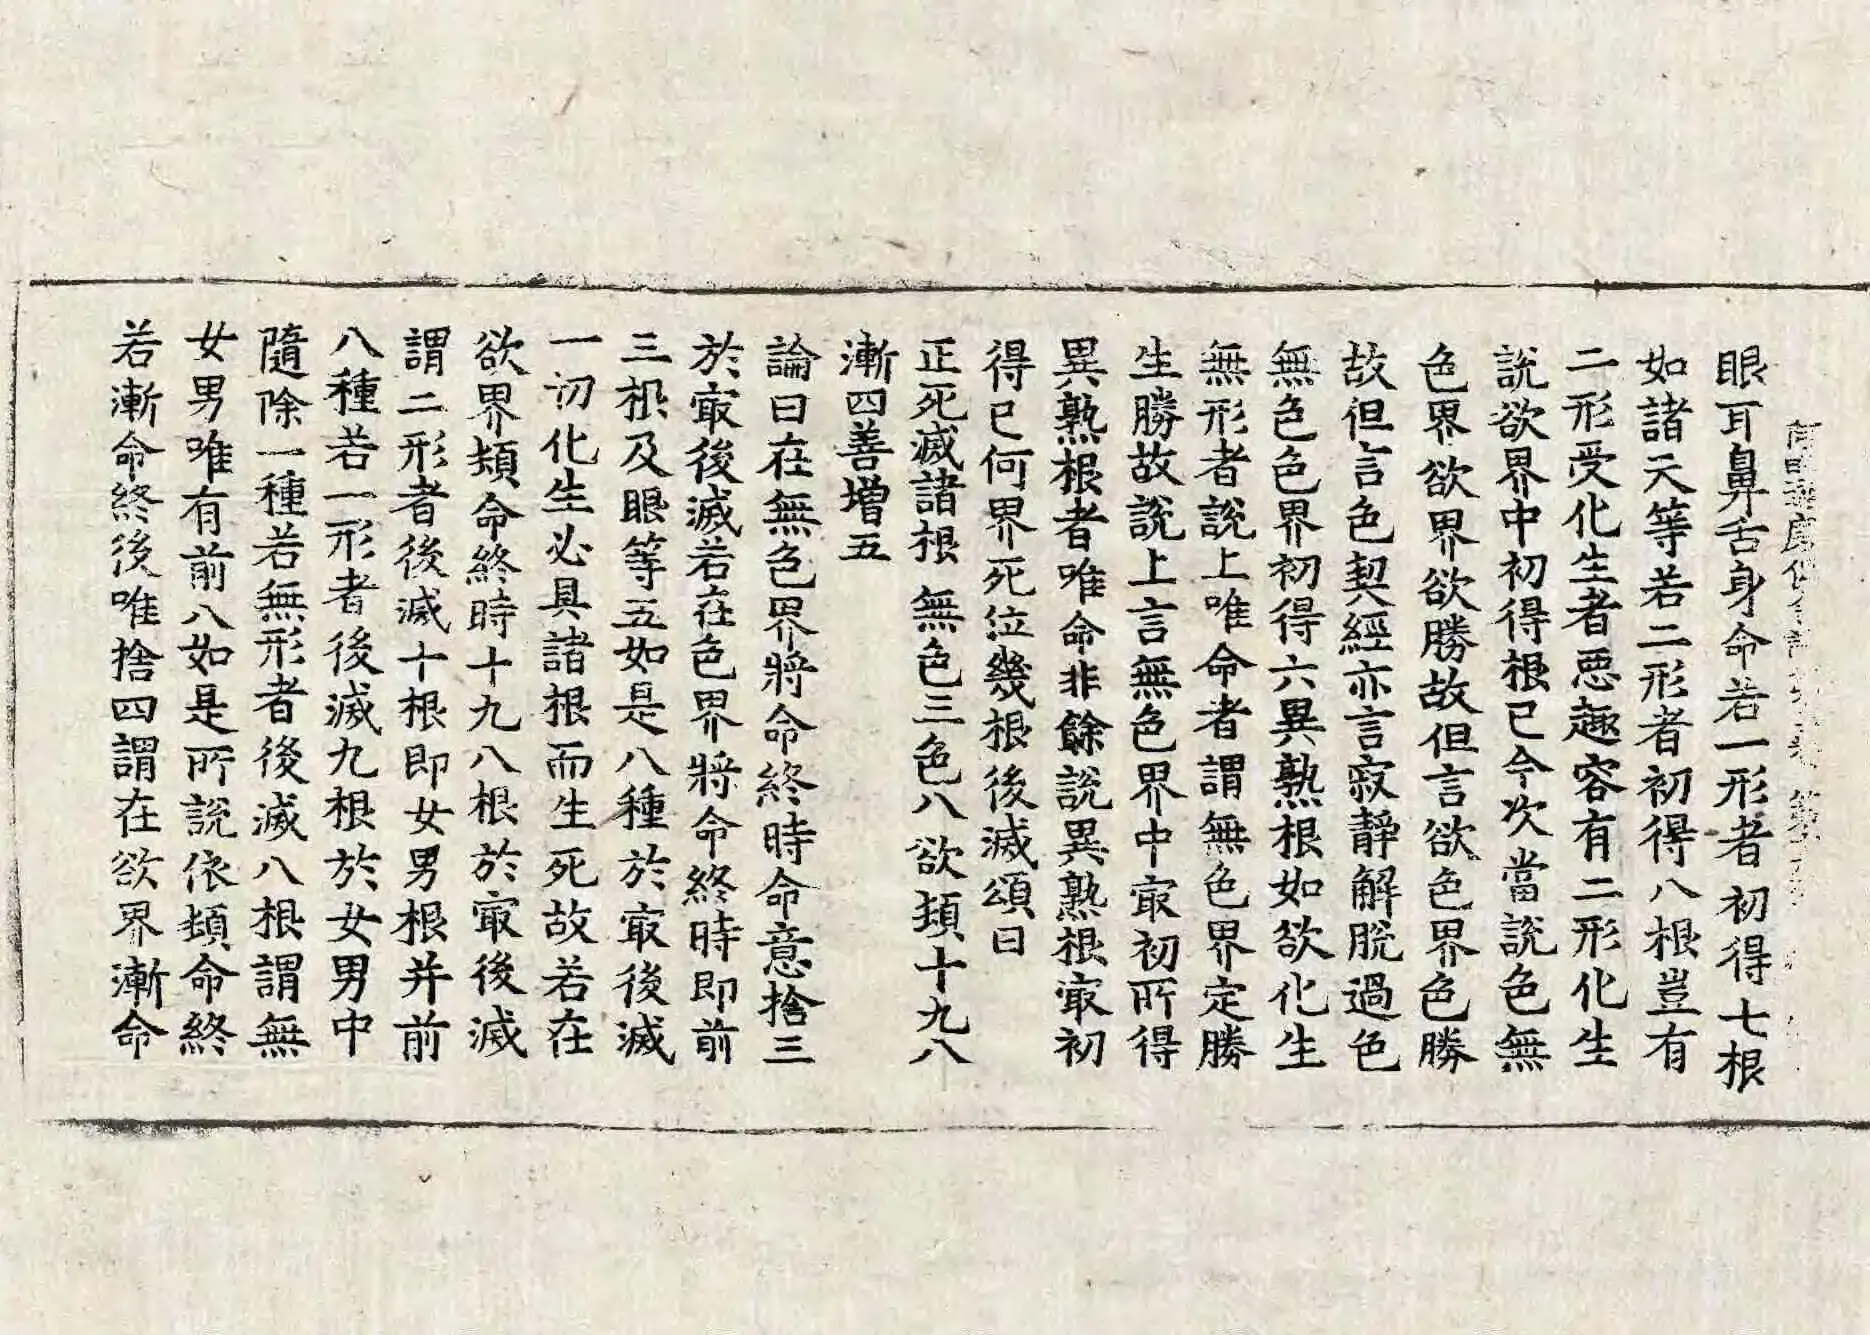 眼耳鼻舌身命若一形者初得七根
如諸天等若二形者初得八根豈有
二形受化生者惡趣容有二形化生
說欲界中初得根已今次當說色無
色界欲界欲勝故但言欲色界色勝
故但言色契經亦言寂靜解脫過色
無色色界初得六異熟根如欲化生
無形者說上唯命者謂無色界定勝
生勝故說上言無色界中㝡初所得
異熟根者唯命非餘說異熟根㝡初
得已何界死位幾根後滅頌曰
正死滅諸根 無色三色八 欲頓十九八
漸四善增五
論曰在無色界將命終時命意捨三
於㝡後滅若在色界將命終時即前
三根及眼等五如是八種於㝡後滅
一切化生必具諸根而生死故若在
欲界頓命終時十九八根於㝡後滅
謂二形者後滅十根即女男根并前
八種若一形者後滅九根於女男中
隨除一種若無形者後滅八根謂無
女男唯有前八如是所說依頓命終
若漸命終後唯捨四謂在欲界漸命